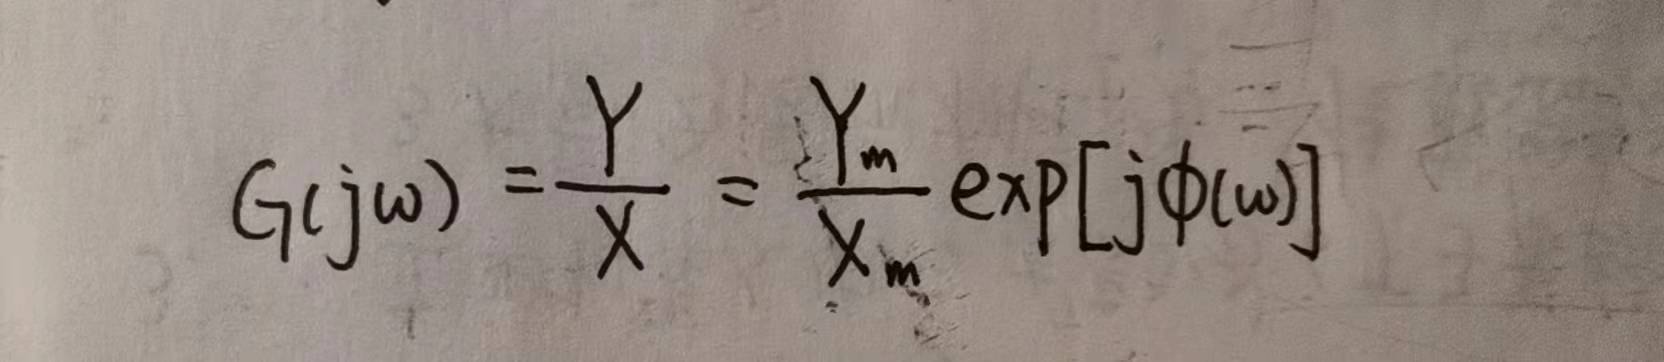 G(jω) = Y/X = Yₘ/Xₘ exp[jϕ(ω)]